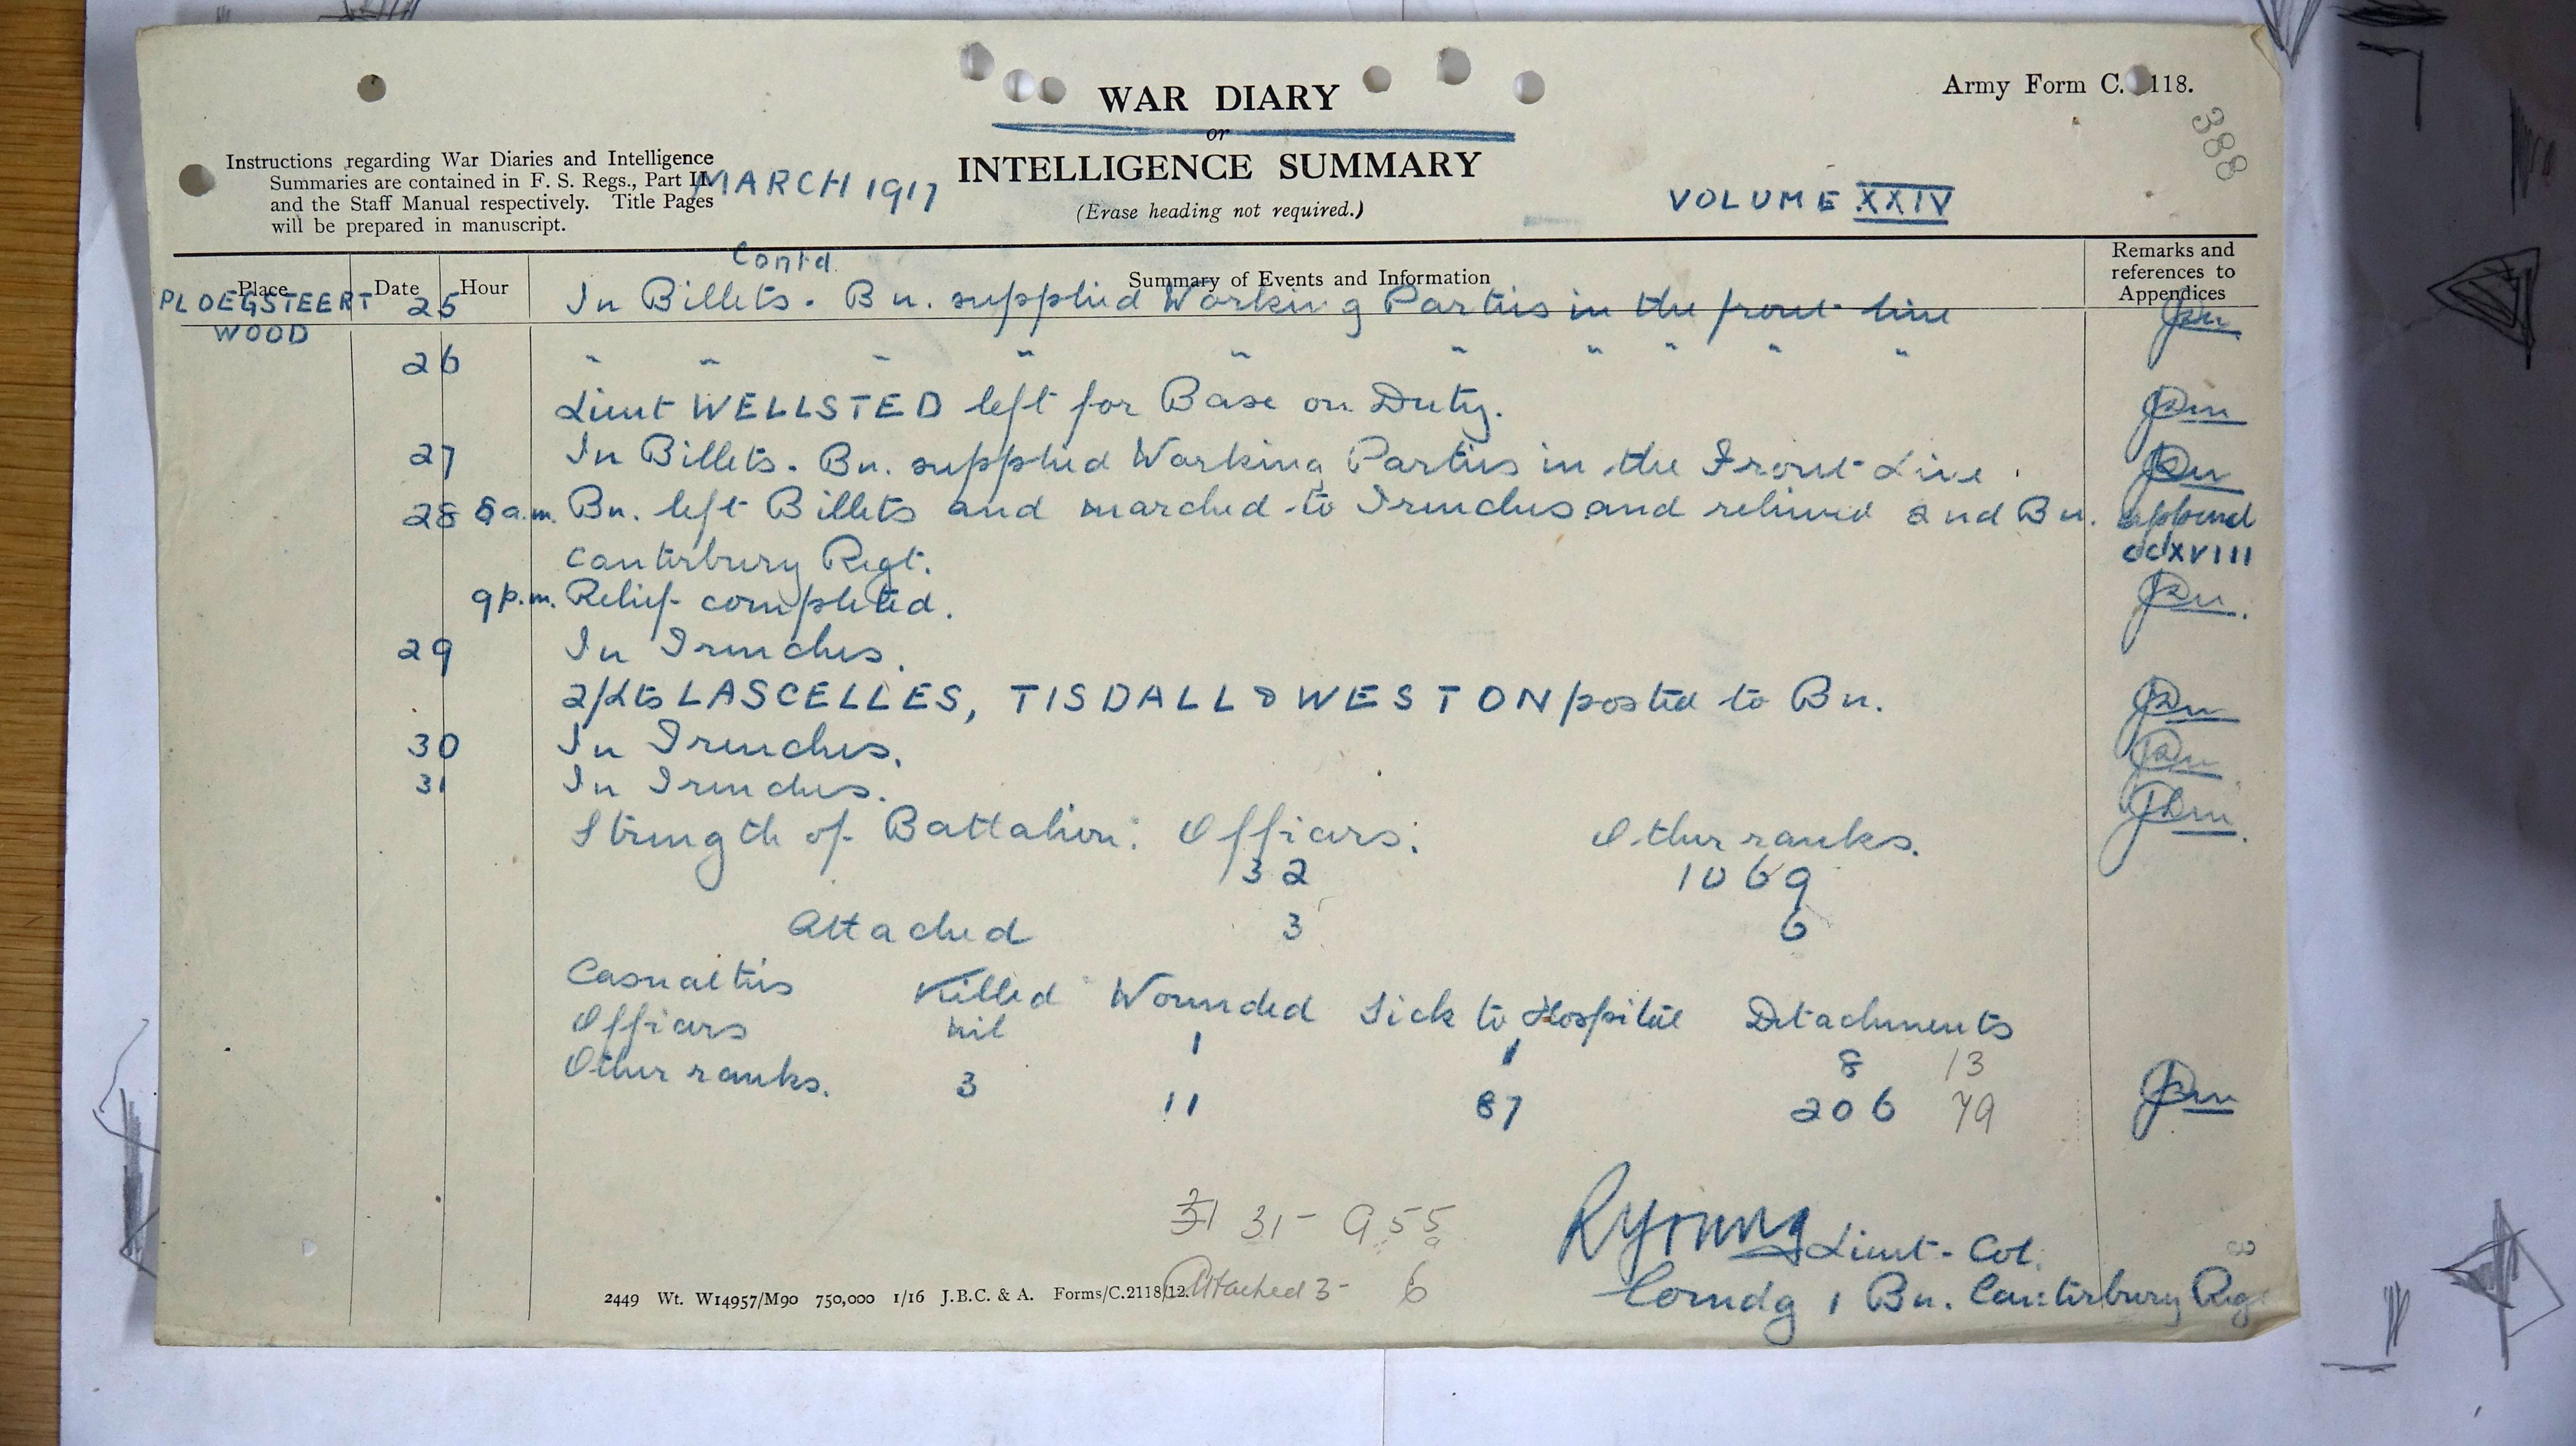 WAR DIARY
or
INTELLIGENCE SUMMARY
(Erase heading not required.)
Army Form C. 118.
388
Instructions regarding War Diaries and Intelligence
Summaries are contained in F. S. Regs., Part II.
and the Staff Manual respectively. Title Pages
will be prepared in manuscript.
MARCH 1917
VOLUME XXIV
Contd
Place Date Hour Summary of Events and Information Remarks and
references to
Appendices
PLOEGSTEERT 25 In Billets. Bn. supplied Working Parties in the front line
WOOD
26 " " " " " " " " " "
Lieut WELLSTED left for Base on Duty.
27 In Billets. Bn. supplied Working Parties in the Front Line.
28 8 a.m. Bn. left Billets and marched to Trenches and relieved 2nd Bn. append
Canterbury Regt. ccxVIII
9 p.m. Relief completed.
29 In Trenches.
2/Lts LASCELLES, TISDALL & WESTON posted to Bn.
30 In Trenches.
31 In Trenches.
Strength of Battalion: Officers: Other ranks.
32 1069
Attached 3 6
Casualties Killed Wounded Sick to Hospital Detachments
Officers nil 1 1 8 13
Other ranks. 3 11 87 206 79
31 31 - 955
Attached 3 - 6
RYoung Lieut-Col.
Comdg 1 Bn. Canterbury Reg
2449 Wt. W14957/M90 750,000 1/16 J.B.C. & A. Forms/C.2118/12.